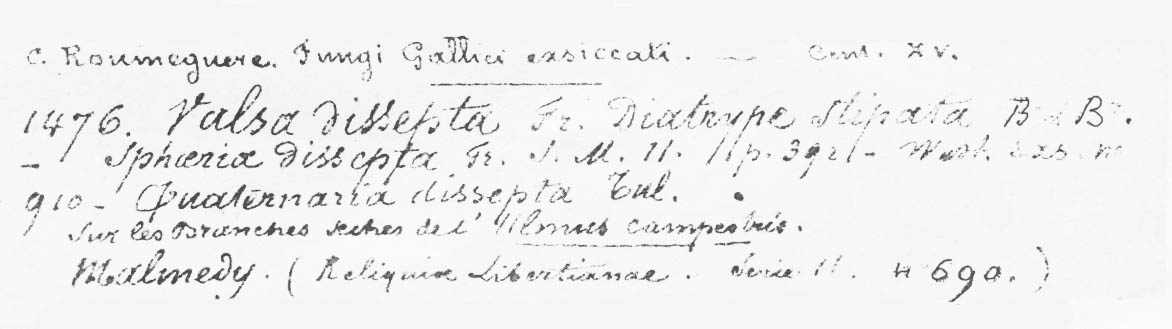 C. Roumeguere. Fungi Gallici exsiccati. — Cent. XV.
1476. Valsa dissepta Fr. Diatrype stipata B. et Br.
— Sphæria dissepta Fr. S. M. 11. p. 392 —
910 — Quaternaria dissepta Tul.
Sur les Branches sèches de l'Ulmus campestris.
Malmedy. (Reliquiæ Libertianae. Serie 11. No 690.)